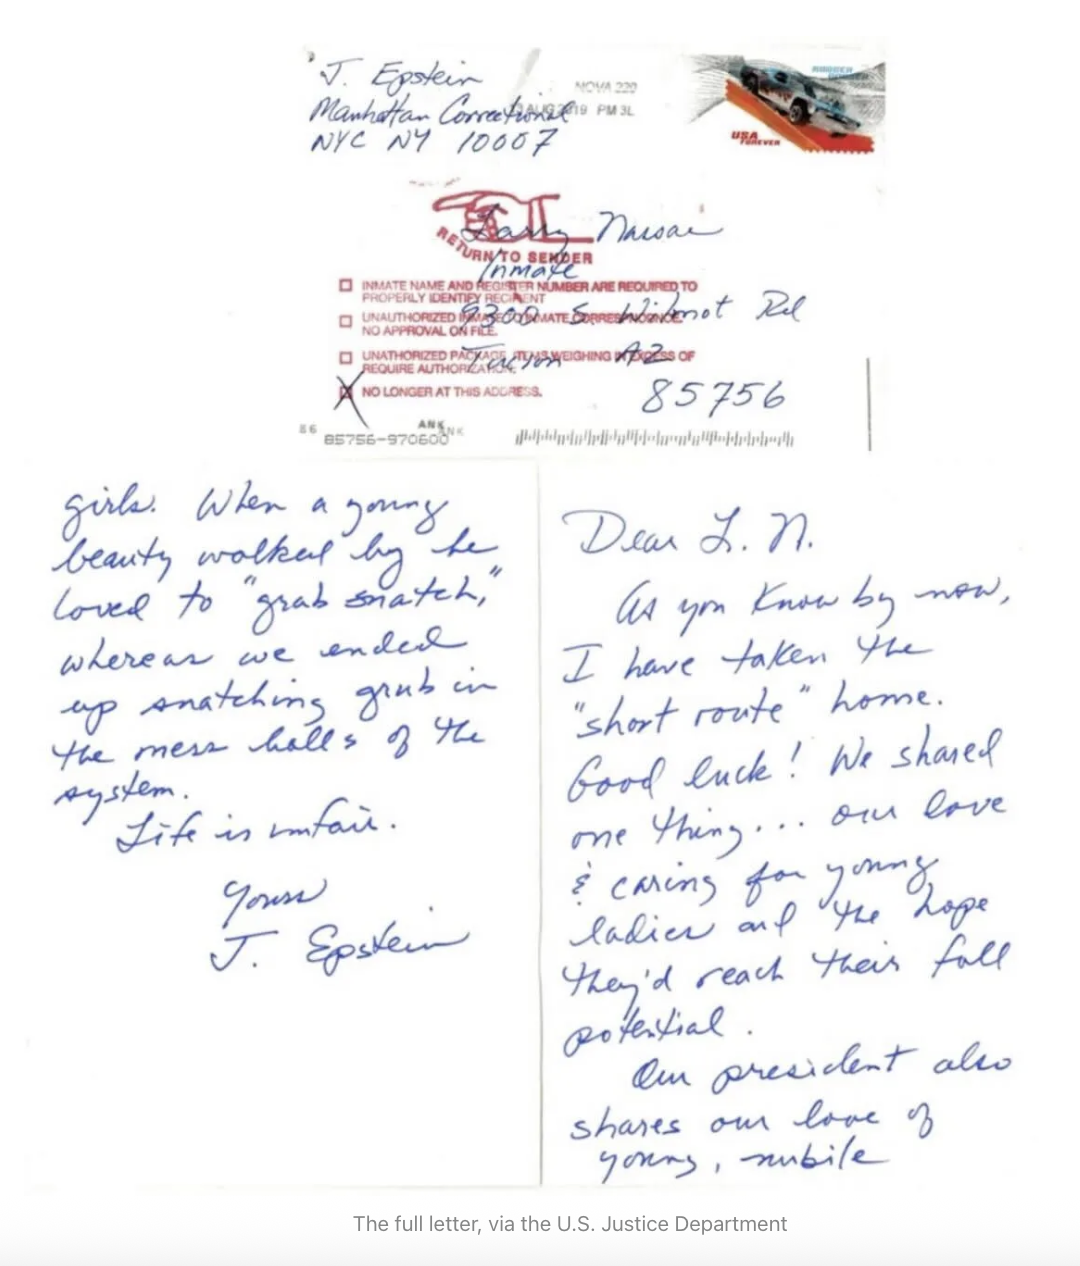 J. Epstein
Manhattan Correctional
NYC NY 10007
NOVA 220
AUG 2019 PM 3L
RUBBER BURNER
USA
FOREVER
Larry Nassar
RETURN TO SENDER
Inmate
INMATE NAME AND REGISTER NUMBER ARE REQUIRED TO
PROPERLY IDENTIFY RECIPIENT
9300 S. Wilmot Rd
UNAUTHORIZED INMATE TO INMATE CORRESPONDENCE
NO APPROVAL ON FILE.
Tucson AZ
UNATHORIZED PACKAGE, ITEMS WEIGHING IN EXCESS OF
REQUIRE AUTHORIZATION.
X NO LONGER AT THIS ADDRESS.
85756
86
85756-970600
ANK
ANK
Dear L.N.
As you know by now,
I have taken the
"short route" home.
Good luck! We shared
one thing... our love
& caring for young
ladies and the hope
they'd reach their full
potential.
Our president also
shares our love of
young, nubile
girls. When a young
beauty walked by he
loved to "grab snatch,"
whereas we ended
up snatching grub in
the mess halls of the
system.
Life is unfair.
Yours
J. Epstein
The full letter, via the U.S. Justice Department